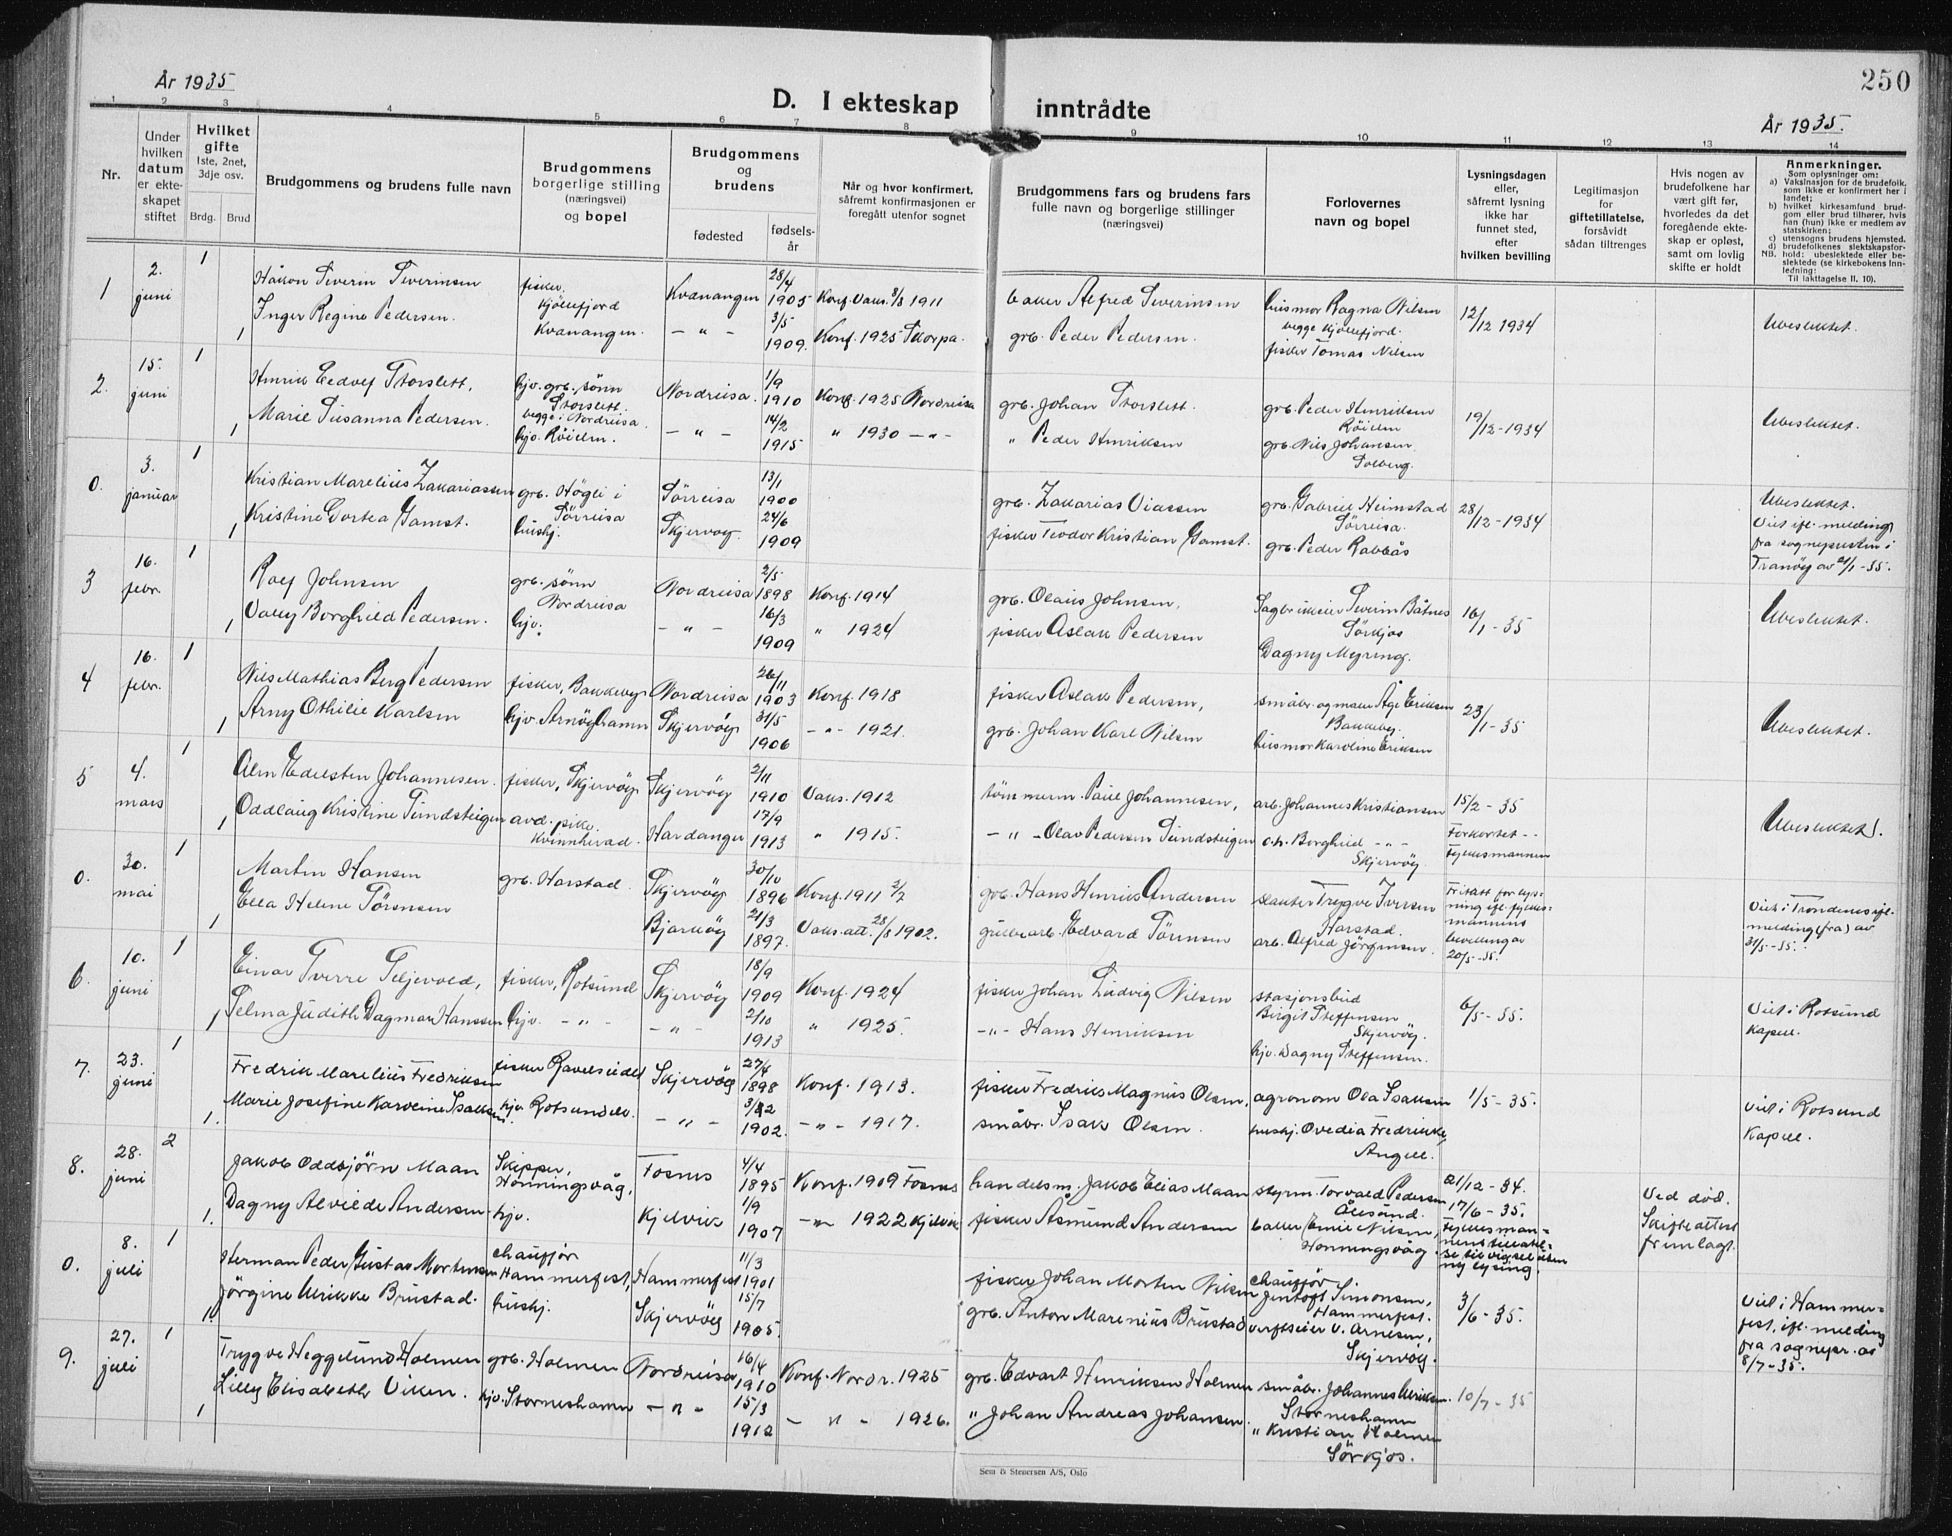 250
År 1935
D. I ekteskap inntrådte
År 1935.
1 2 3 4 5 6 7 8 9 10 11 12 13 14
Nr.
Under hvilken datum er ekteskapet stiftet
Hvilket gifte 1ste, 2net, 3dje osv.
Brdg. Brud
Brudgommens og brudens fulle navn
Brudgommens borgerlige stilling (næringsvei) og bopel
Brudgommens og brudens
fødested
fødselsår
Når og hvor konfirmert, såfremt konfirmasjonen er foregått utenfor sognet
Brudgommens fars og brudens fars fulle navn og borgerlige stillinger (næringsvei)
Forlovernes navn og bopel
Lysningsdagen eller, såfremt lysning ikke har funnet sted, efter hvilken bevilling
Legitimasjon for giftetillatelse, forsåvidt sådan tiltrenges
Hvis nogen av brudefolkene har vært gift før, hvorledes da det foregående ekteskap er opløst, samt om lovlig skifte er holdt
Anmerkninger.
Som oplysninger om:
a) Vaksinasjon for de brudefolk, som ikke er konfirmert her i landet;
b) hvilket kirkesamfund brudgom eller brud tilhører, hvis han (hun) ikke er medlem av statskirken;
c) utensogns brudens hjemsted.
d) brudefolkenes slektskapsforhold: ubeslektede eller beslektede (se kirkebokens Innledning:
NB. Til Iakttagelse II. 10).
1 2. juni 1 Håkon Severin Severinsen fisker, Kjøllefjord Kvænangen 28/4 1905 Konf. Vaks. 8/8 1911 baker Alfred Severinsen husmor Ragna Nilsen begge Kjøllefjord. 12/12 1934 Ubeslektet.
1 Inger Regine Pedersen. Kvænangen. - " - 3/5 1909. Konf. 1925 Skorpa. grb. Peder Pedersen. fisker Tomas Nilsen
2. 15. juni 1 Henrik Ledolf Storslett, hjv. grb. sønn Storslett. begge i Nordreisa. Nordreisa. 1/9 1910 Konf. 1925 Nordreisa grb. Johan Storslett. grb. Peder Henriksen Røielen 19/12-1934 Ubeslektet.
1 Marie Susanna Pedersen. hjv. Røielen. - " - 14/2 1915 " 1930 - " - " Peder Henriksen grb. Nils Johansen Solberg.
0. 3. januar 1 Kristian Marelius Zakariassen grb. Høgli i Sørreisa Sørreisa 13/1 1900 grb. Zakarias Oiassen grb. Gabriel Heimstad Sørreisa. 28/12-1934 Ubeslektet.
1 Kristine Dortea Gamst. hushj. Skjervøy. 24/6 1909 fisker Teodor Kristian Gamst. grb. Peder Rabbås Viet ifl. melding fra sognepresten i Tranøy av 21/1-35.
3 16. febr. 1 Rolf Johnsen grb. sønn Nordreisa Nordreisa 2/5 1898 Konf. 1914 grb. Olaus Johnsen, Sagbrukseier Severin Båtnes Sørkjos 16/1-35 Ubeslektet.
1 Valley Borghild Pedersen. hjv. - " - 16/3 1909 " 1924 fisker Aslak Pedersen Dagny Myreng.
4 16. febr. 1 Nils Mathias Berg Pedersen fisker, Bakkeby Nordreisa 26/11 1903 Konf. 1918 fisker Aslak Pedersen, småbr. og maler Åge Eriksen Bakkeby. 23/1-35 Ubeslektet.
1 Arny Othilie Karlsen hjv. Arnøyhamn Skjervøy 31/5 1906 - " - 1921. grb. Johan Karl Nilsen husmor Karoline Eriksen
5 4. mars 1 Alm Edelsten Johannesen. fisker, Skjervøy Skjervøy 2/11 1910 Vaks. 1912 tømmerm. Paul Johannesen, arb. Johannes Kristiansen 15/2-35 Ubeslektet.
1 Oddlaug Kristine Tundsteigen avd. pike. Kvinnherad. Hardanger 17/9 1913 " 1915. - " - Olav Pedersen Tundsteigen o.h. Borghild - " - Skjervøy. Forkortet - - Fylkesmannen
0. 30. mai 1 Martin Hansen grb. Harstad. Skjervøy 30/10 1896 Konf. 1911 2/7 grb. Hans Henrik Andersen slakter Trygve Iversen Harstad. Fritatt for lysning ifl. fylkesmannens bevilling av 20/5-35. Viet i Trondenes ifl. melding (fra) av 31/5-35.
1 Ella Helene Sørensen Bjarkøy 21/3 1897. Vaks. att. 28/8 1902. grubearb. Edvard Sørensen arb. Alfred Jørgensen.
6 10. juni 1 Einar Sverre Seljevold, fisker, Rotsund Skjervøy 18/9 1909 Konf. 1924 fisker Johan Ludvig Nilsen stasjonsbud Birgit Steffensen Skjervøy. 6/5-35. Viet i Rotsund Kapell.
1 Selma Judith Dagmar Hanssen hjv. - " - - " - 2/10 1913 " 1925. - " - Hans Henriksen hjv. Dagny Steffensen.
7. 23. juni 1 Fredrik Marelius Fredriksen fisker Ravelseidet Skjervøy 27/4 1898 Konf. 1913. fisker Fredrik Magnus Olsen, agronom Ola Isaksen 1/5-35. Viet i Rotsund Kapell.
1. Marie Josefine Karoline Isaksen. hjv. Rotsundelv. - " - 3/12 1902. - " - 1917. småbr. Isak Olsen. hushj. Ovedia Fredrikke Angell.
8. 28. juni 2 Jakob Oddbjørn Maan Skipper, Honningsvåg, Fosnes 4/4 1895 Konf. 1909 Fosnes handelsm. Jakob Elias Maan styrm. Torvald Pedersen Ålesund. 21/12-34. 17/6-35. Ved død. Skifteattest fremlagt.
1. Dagny Alvilde Andersen hjv. Kjelvik 1/9 1907 - " - 1922 Kjelvik fisker Åsmund Andersen baker Emil Nilsen, Honningsvåg. Fylkesmannens tillatelse til vigsel uten ny lysing.
0. 8. juli 1 Herman Peder Gustav Mortensen chaufjør Hammerfest, Hammerfest 11/3 1901 fisker Johan Morten Nilsen chaufjør Jentoft Simonsen, Hammerfest. 3/6-35. Viet i Hammerfest, ifl. melding fra sognepr. av 8/7-35.
1. Jørgine Ulrikke Brustad. hushj. Skjervøy 15/7 1905. grb. Anton Marenius Brustad verftseier V. Arnesen, Skjervøy.
9. 27. juli 1 Trygve Heggelund Holmen grb. Holmen Nordreisa 16/4 1910 Konf. Nordr. 1925 grb. Edvart Henriksen Holmen småbr. Johannes Ulriksen. Storneshamn 10/7-35
1 Lilly Elisabeth Viken. hjv. Storneshamn - " - 15/3 1912 - " - 1926. " Johan Andreas Johansen. " Kristian Holmen Sørkjos.
Sem & Stenersen A/S, Oslo